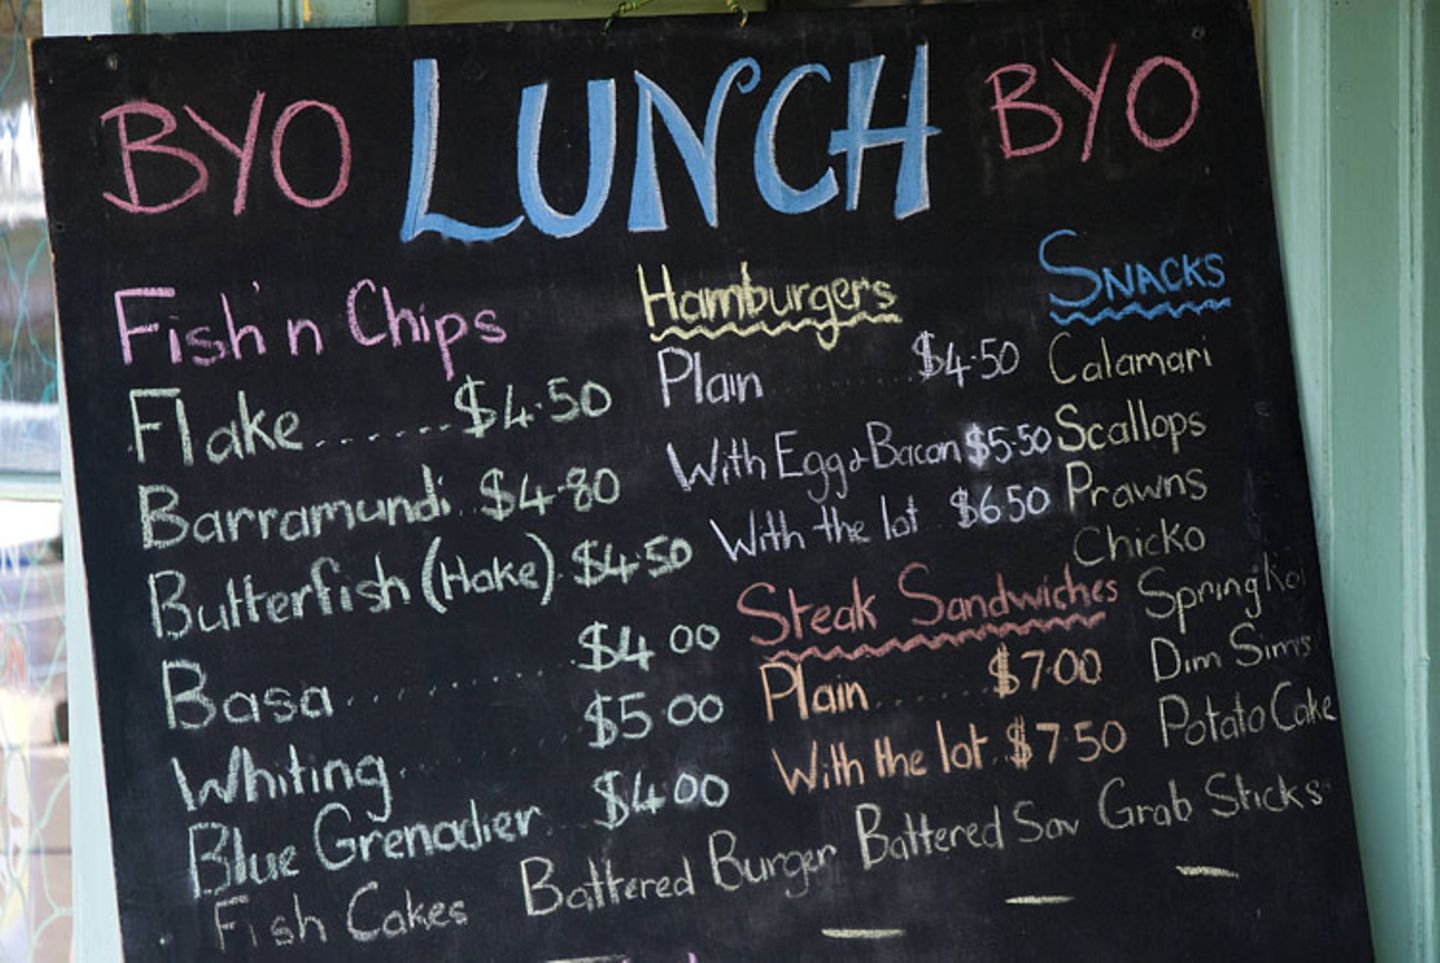 BYO LUNCH BYO
Fish'n Chips
Flake.......$4.50
Barramundi..$4.80
Butterfish (Hake).$4.50
Basa..........$4.00
Whiting.......$5.00
Blue Grenadier...$4.00
Hamburgers
Plain........$4.50
With Egg & Bacon $5.50
With the lot..$6.50
Steak Sandwiches
Plain.......$7.00
With the lot.$7.50
SNACKS
Calamari
Scallops
Prawns
Chicko
Spring
Dim Sims
Potato Cake
Fish Cakes Battered Burger Battered Sav Grab Sticks